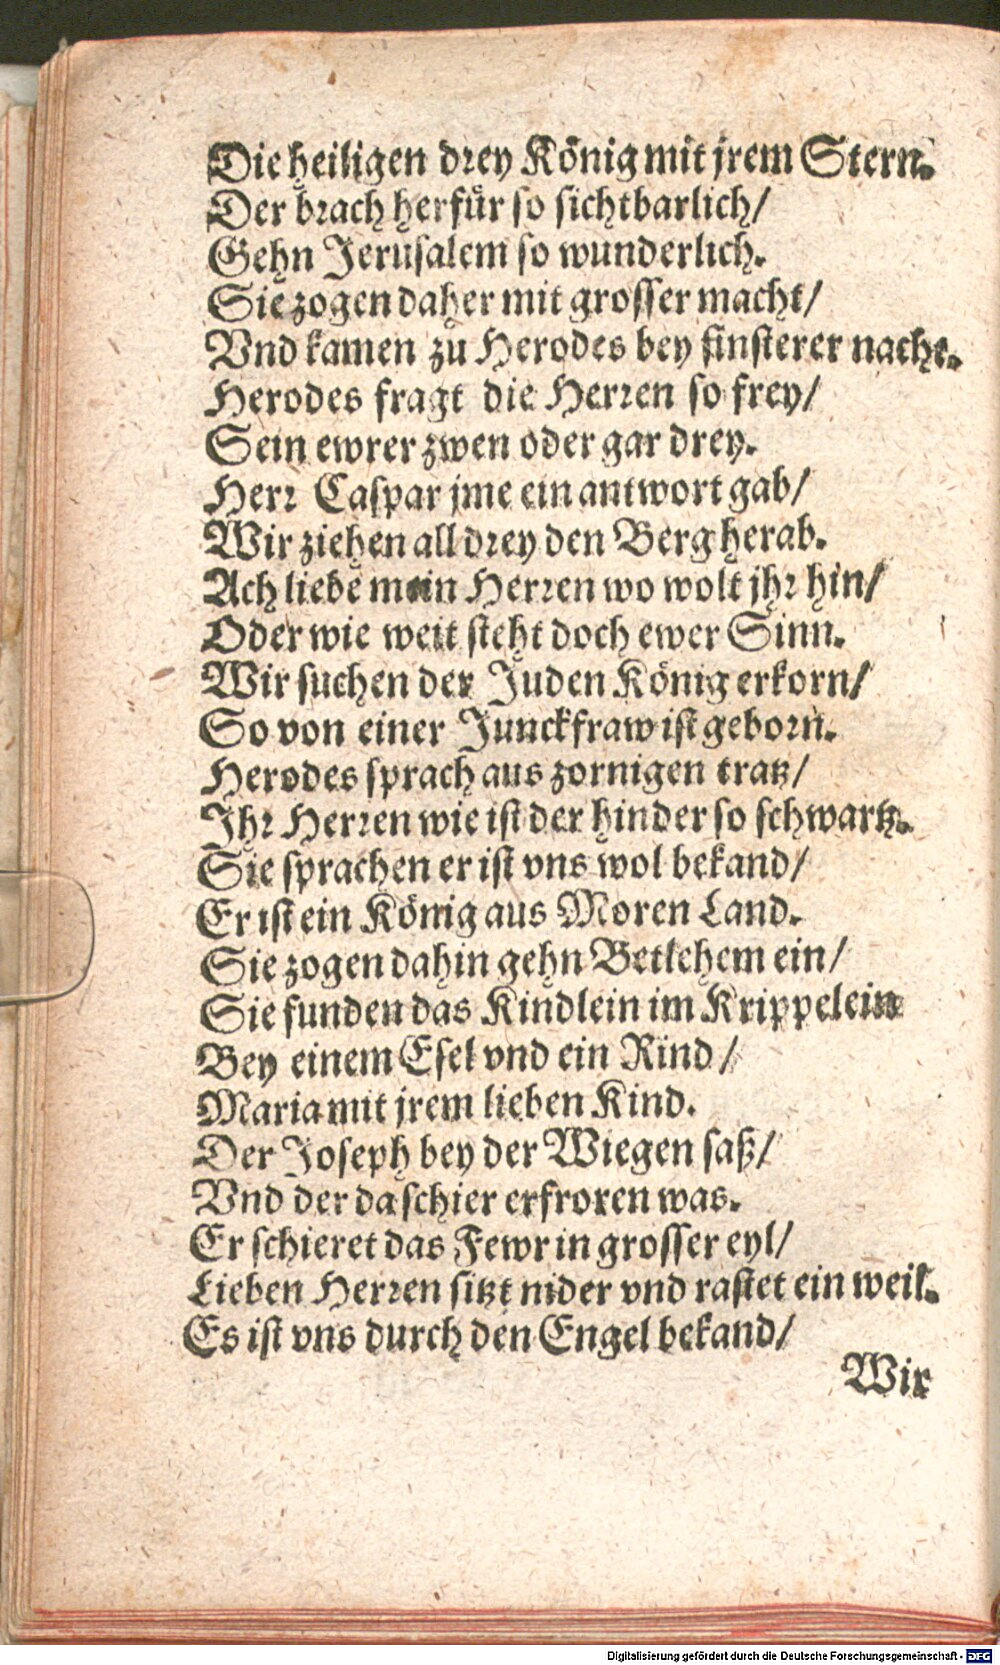 Die heiligen drey König mit jrem Stern.
Der brach herfür so sichtbarlich/
Gehn Jerusalem so wunderlich.
Sie zogen daher mit grosser macht/
Vnd kamen zu Herodes bey finsterer nacht.
Herodes fragt die Herren so frey/
Sein ewrer zwen oder gar drey.
Herr Caspar jme ein antwort gab/
Wir ziehen all drey den Berg herab.
Ach liebe mein Herren wo wolt jhr hin/
Oder wie weit steht doch ewer Sinn.
Wir suchen der Juden König erkorn/
So von einer Junckfraw ist geborn.
Herodes sprach aus zornigen tratz/
Jhr Herren wie ist der hinder so schwartz.
Sie sprachen er ist vns wol bekand/
Er ist ein König aus Moren Land.
Sie zogen dahin gehn Betlehem ein/
Sie funden das Kindlein im Krippelein
Bey einem Esel vnd ein Rind/
Maria mit jrem lieben Kind.
Der Joseph bey der Wiegen saß/
Vnd der da schier erfroren was.
Er schieret das Fewr in grosser eyl/
Lieben Herren sitzt nider vnd rastet ein weil.
Es ist vns durch den Engel bekand/
Wir
Digitalisierung gefördert durch die Deutsche Forschungsgemeinschaft - DFG